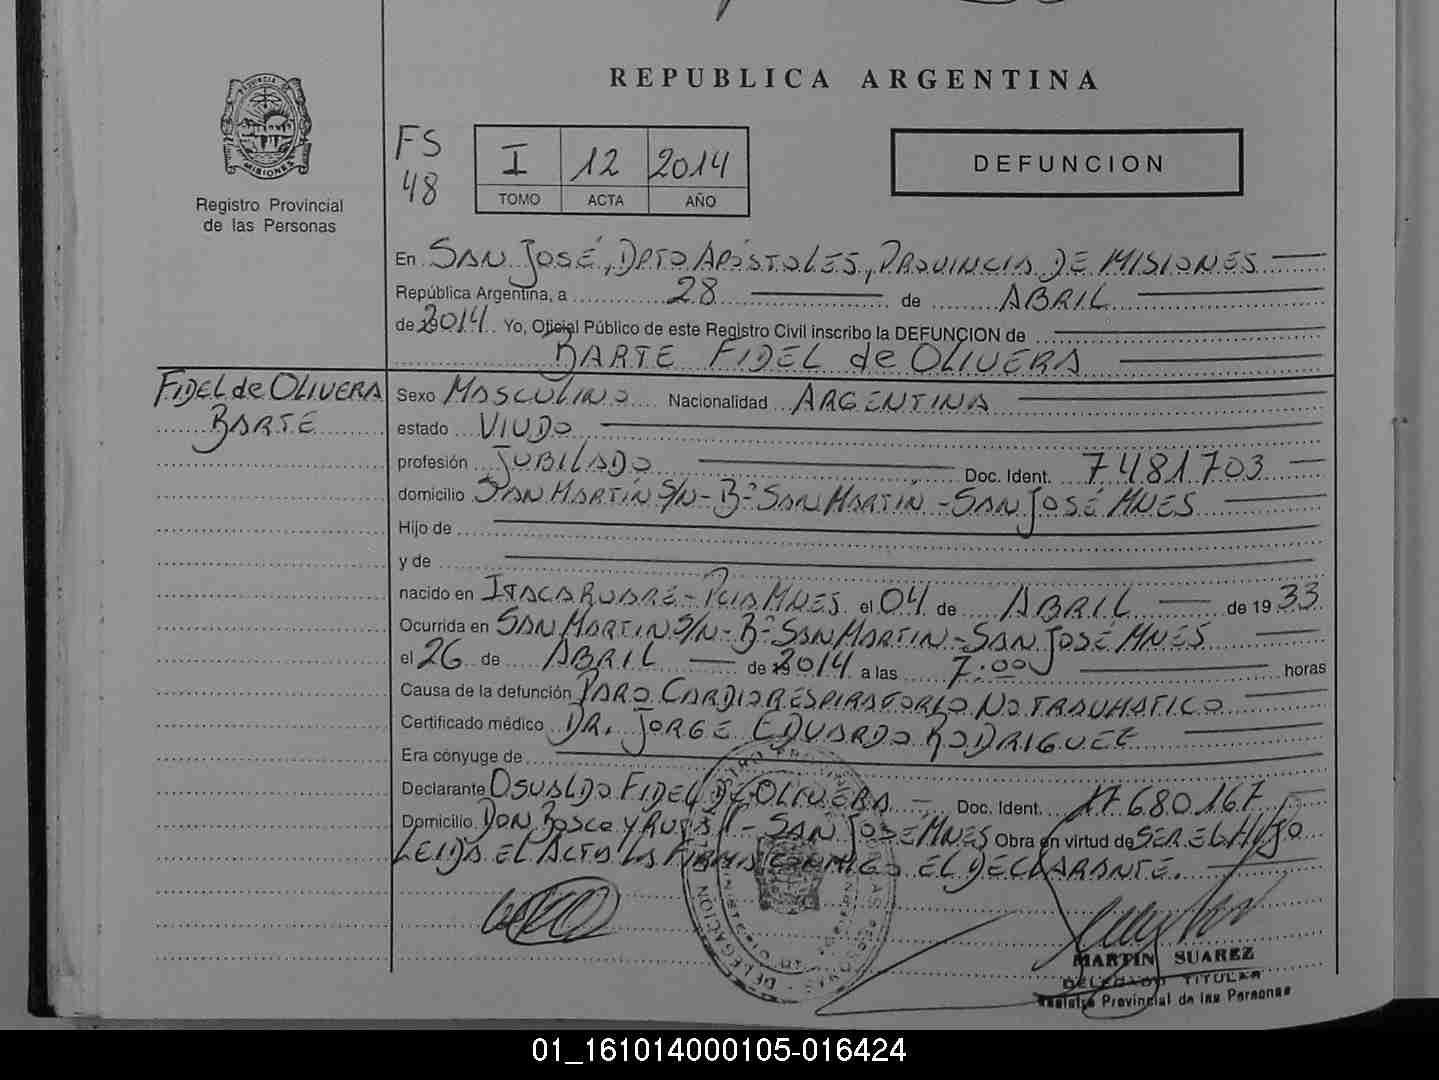 REPUBLICA ARGENTINA
PROVINCIA DE
MISIONES
Registro Provincial
de las Personas
FS
48
I 12 2014
TOMO ACTA AÑO
DEFUNCION
En SAN JOSÉ, DPTO APÓSTOLES, PROVINCIA DE MISIONES
República Argentina, a 28 de ABRIL
de 2014. Yo, Oficial Público de este Registro Civil inscribo la DEFUNCION de
BARTE FIDEL de OLIVERA
FIDEL de OLIVERA
BARTE
Sexo MASCULINO Nacionalidad ARGENTINA
estado VIUDO
profesión JUBILADO Doc. Ident. 7481703
domicilio SAN MARTÍN S/N - Bº SAN MARTIN - SAN JOSÉ MNES
Hijo de
y de
nacido en ITACARUARE - PCIA MNES. el 04 de ABRIL de 1933
Ocurrida en SAN MARTIN S/N - Bº SAN MARTIN - SAN JOSÉ MNES
el 26 de ABRIL de 2014 a las 7:00 horas
Causa de la defunción PARO CARDIORESPIRATORIO NO TRAUMATICO
Certificado médico DR. JORGE EDUARDO RODRIGUEZ
Era cónyuge de
Declarante OSVALDO FIDEL DE OLIVERA Doc. Ident. 17680167
Domicilio DON BOSCO Y RUTA 1 - SAN JOSÉ MNES Obra en virtud de SER EL HIJO
LEIDA EL ACTA LA FIRMA CONMIGO EL DECLARANTE.
DELEGACION
MARTIN SUAREZ
DELEGADO TITULAR
Registro Provincial de las Personas
01_161014000105-016424